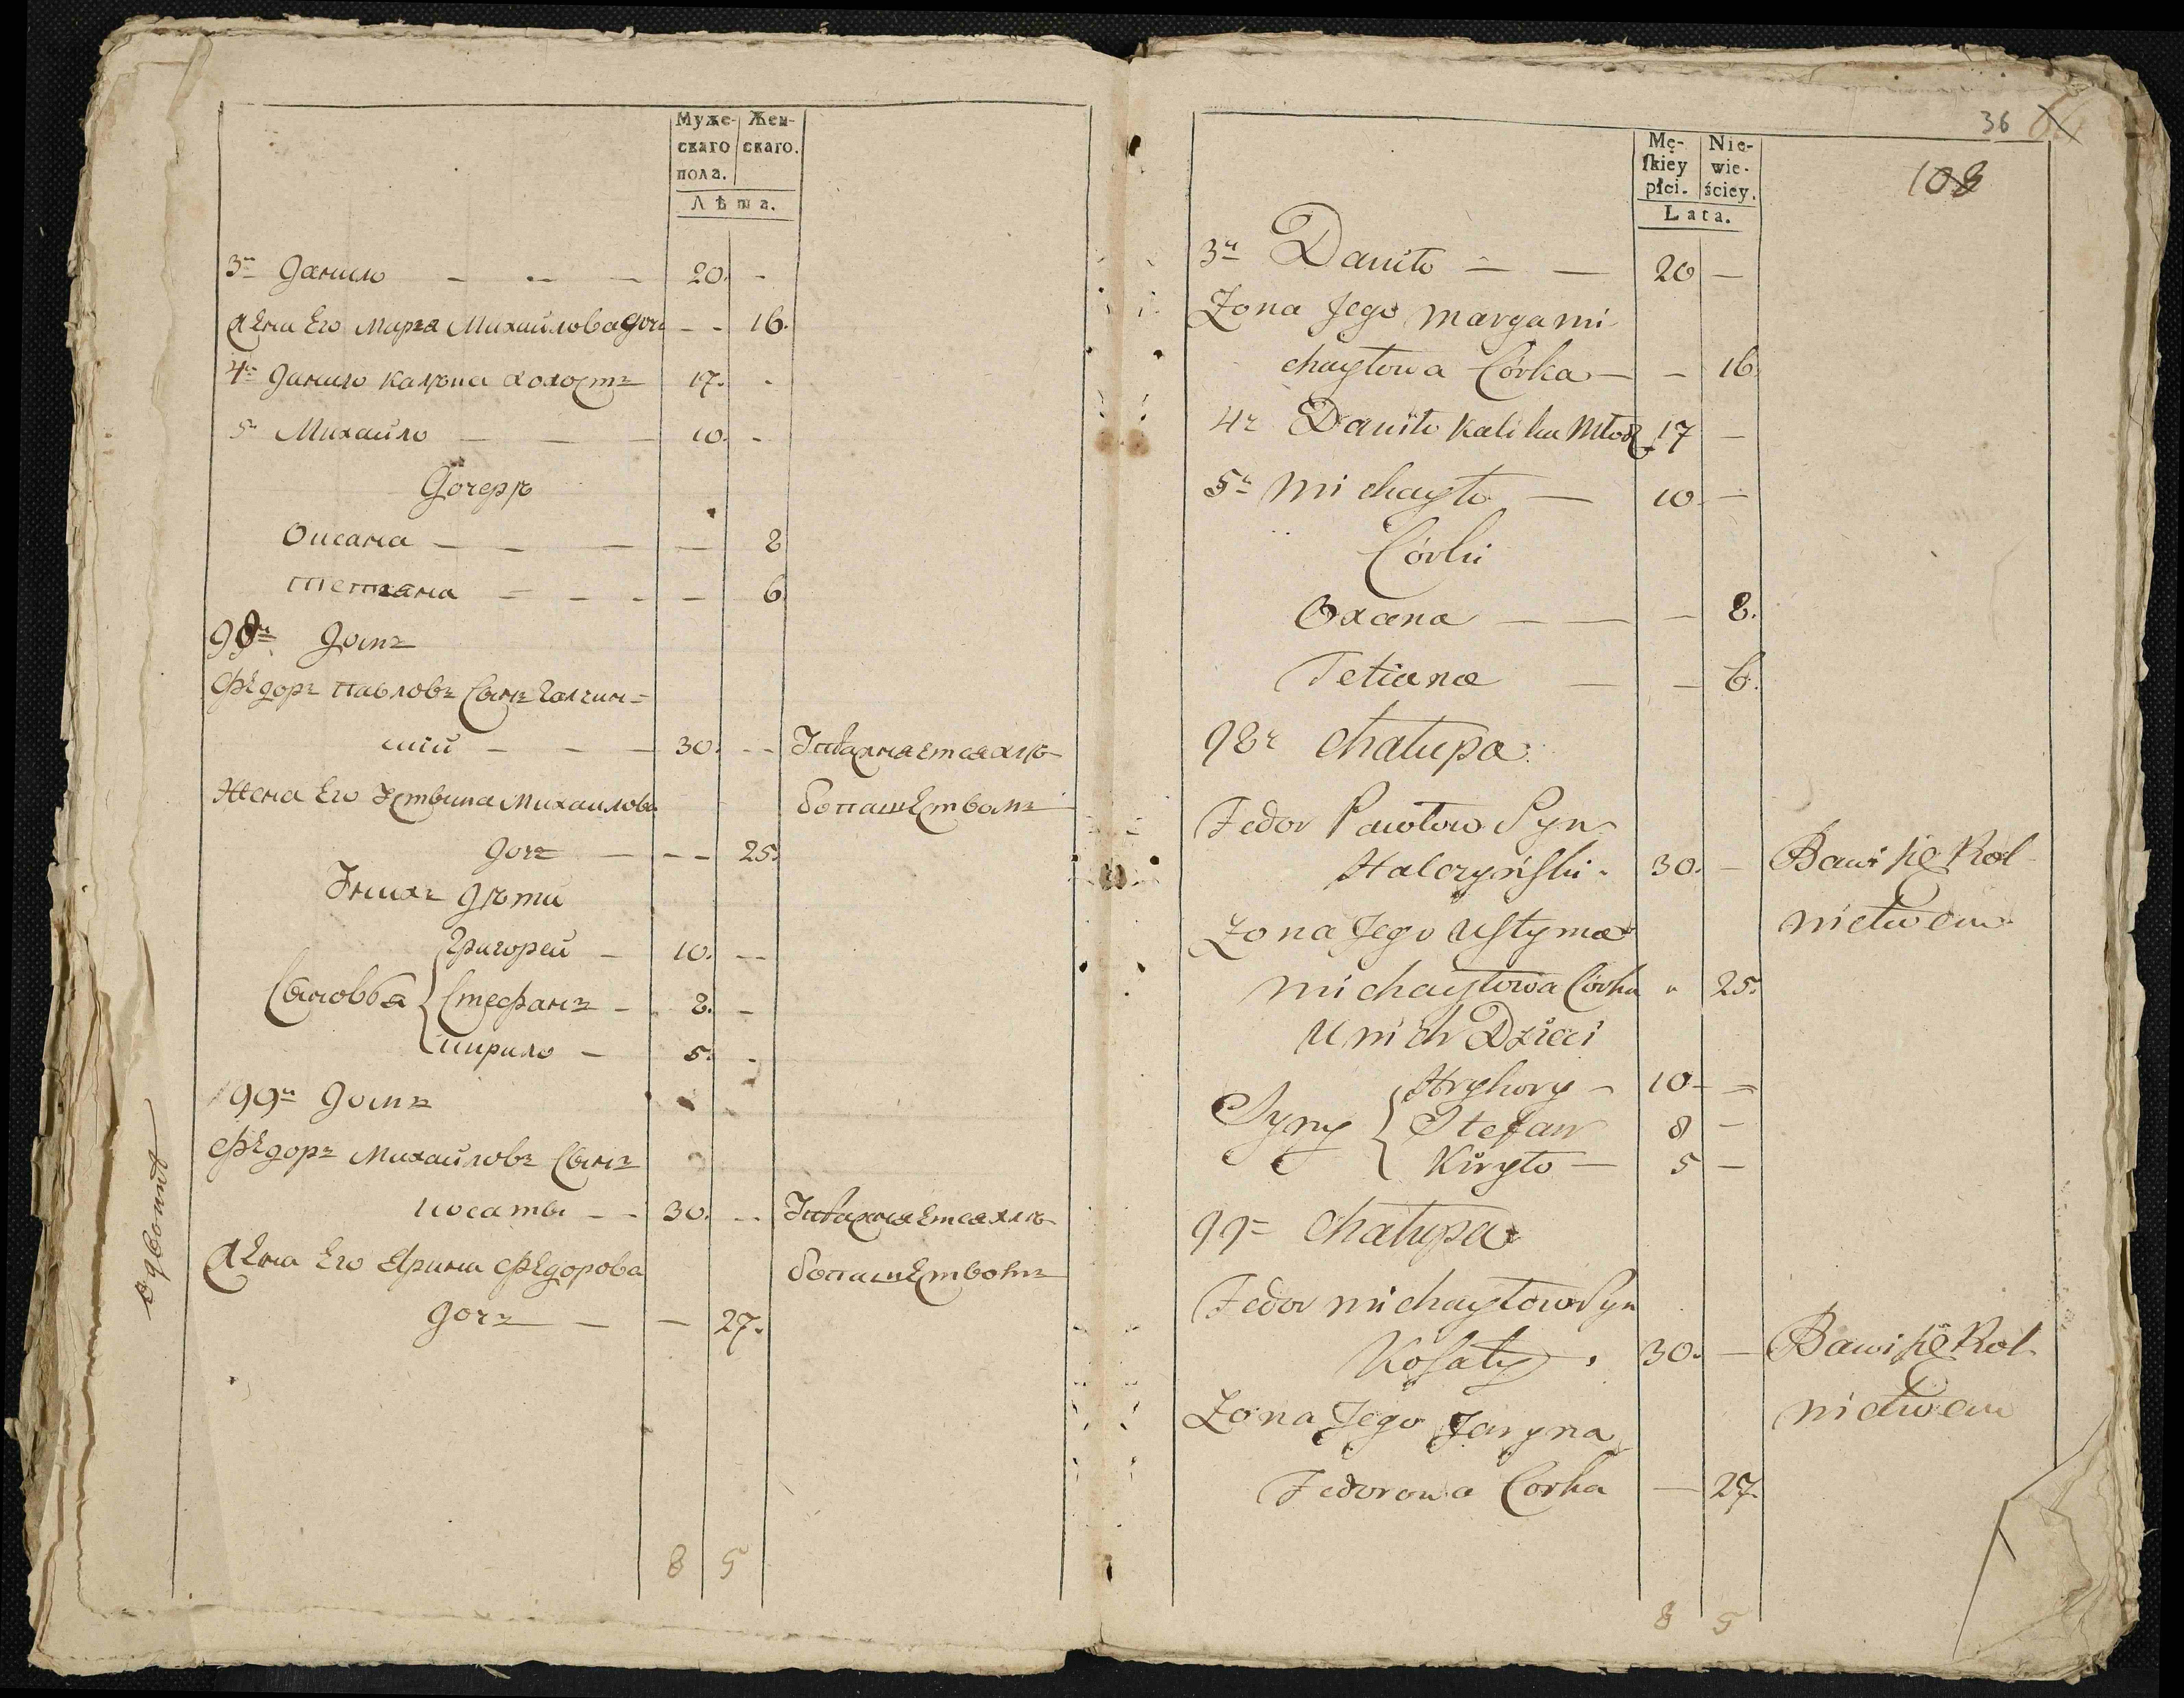 Муже-
скаго
пола.
Жен-
скаго.
Лѣта.
3й Данило — — — 20. -
жена Его Марга Михайлова доч - - 16.
4й Данило калѣка холостъ 17. -
5й Михайло — — — 10. -
Дочерѣ
Оксана — — — — 8
Тетяна — — — — 6.
98й Домъ
Федоръ Павловъ Сынъ Галчин=
скій — — — 30. - - Упражняется хлѣ-
Жена Его Устина Михайлова бопашествомъ
дочь — - - 25.
У нихъ дѣти
Сыновья { Григорей — 10. - -
Стефанъ — 8. -
Кирило — 5. -
99й Домъ
Федоръ Михайловъ Сынъ
Косаты - - 30. - - Упражняется хлѣ-
Жена Его Ярина Федорова бопашествомъ
дочь — — — 27.
8 5
36
108
Mę-
ſkiey
płci.
Nie-
wie-
ściey.
Lata.
3й Daniło — — 20 —
Zona Jego Marga Mi-
chayłowa Córka — — 16.
4й Daniło Kalika Młodz 17 —
5й Michayło — 10. —
Córki
Oxana — — — 8.
Tetiana — — 6.
98й Chałupa
Fedor Pawłow Syn
Halczyńſki. 30. — Bawi ſię Rol-
Zona Jego Uſtyma nictwem
Michayłowa Córka " 25.
U nich Dzieci
Syny { Hryhory — 10 — =
Stefan 8 —
Kiryło — 5 —
99= Chałupa
Fedor Michayłow Syn
Koſaty. 30. — Bawi ſię Rol-
Zona Jego Jaryna nictwem
Fedorowa Corka — 27.
8 5